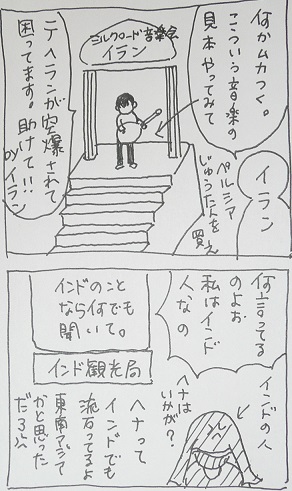 何かムカつく。
こういう音楽の
見本やってみて
シルクロード音楽会
イラン
テヘランが空爆されて
困ってます。助けて!!
byイラン
イラン
ペルシア
じゅうたんを買え
何言ってる
のよお
私はインド
人なの
インドのこと
なら何でも
聞いて。
インド観光局
インドの人
ヘナは
いかが?
ヘナって
インドでも
流行ってるよ
東南アジア
かと思った
だろ